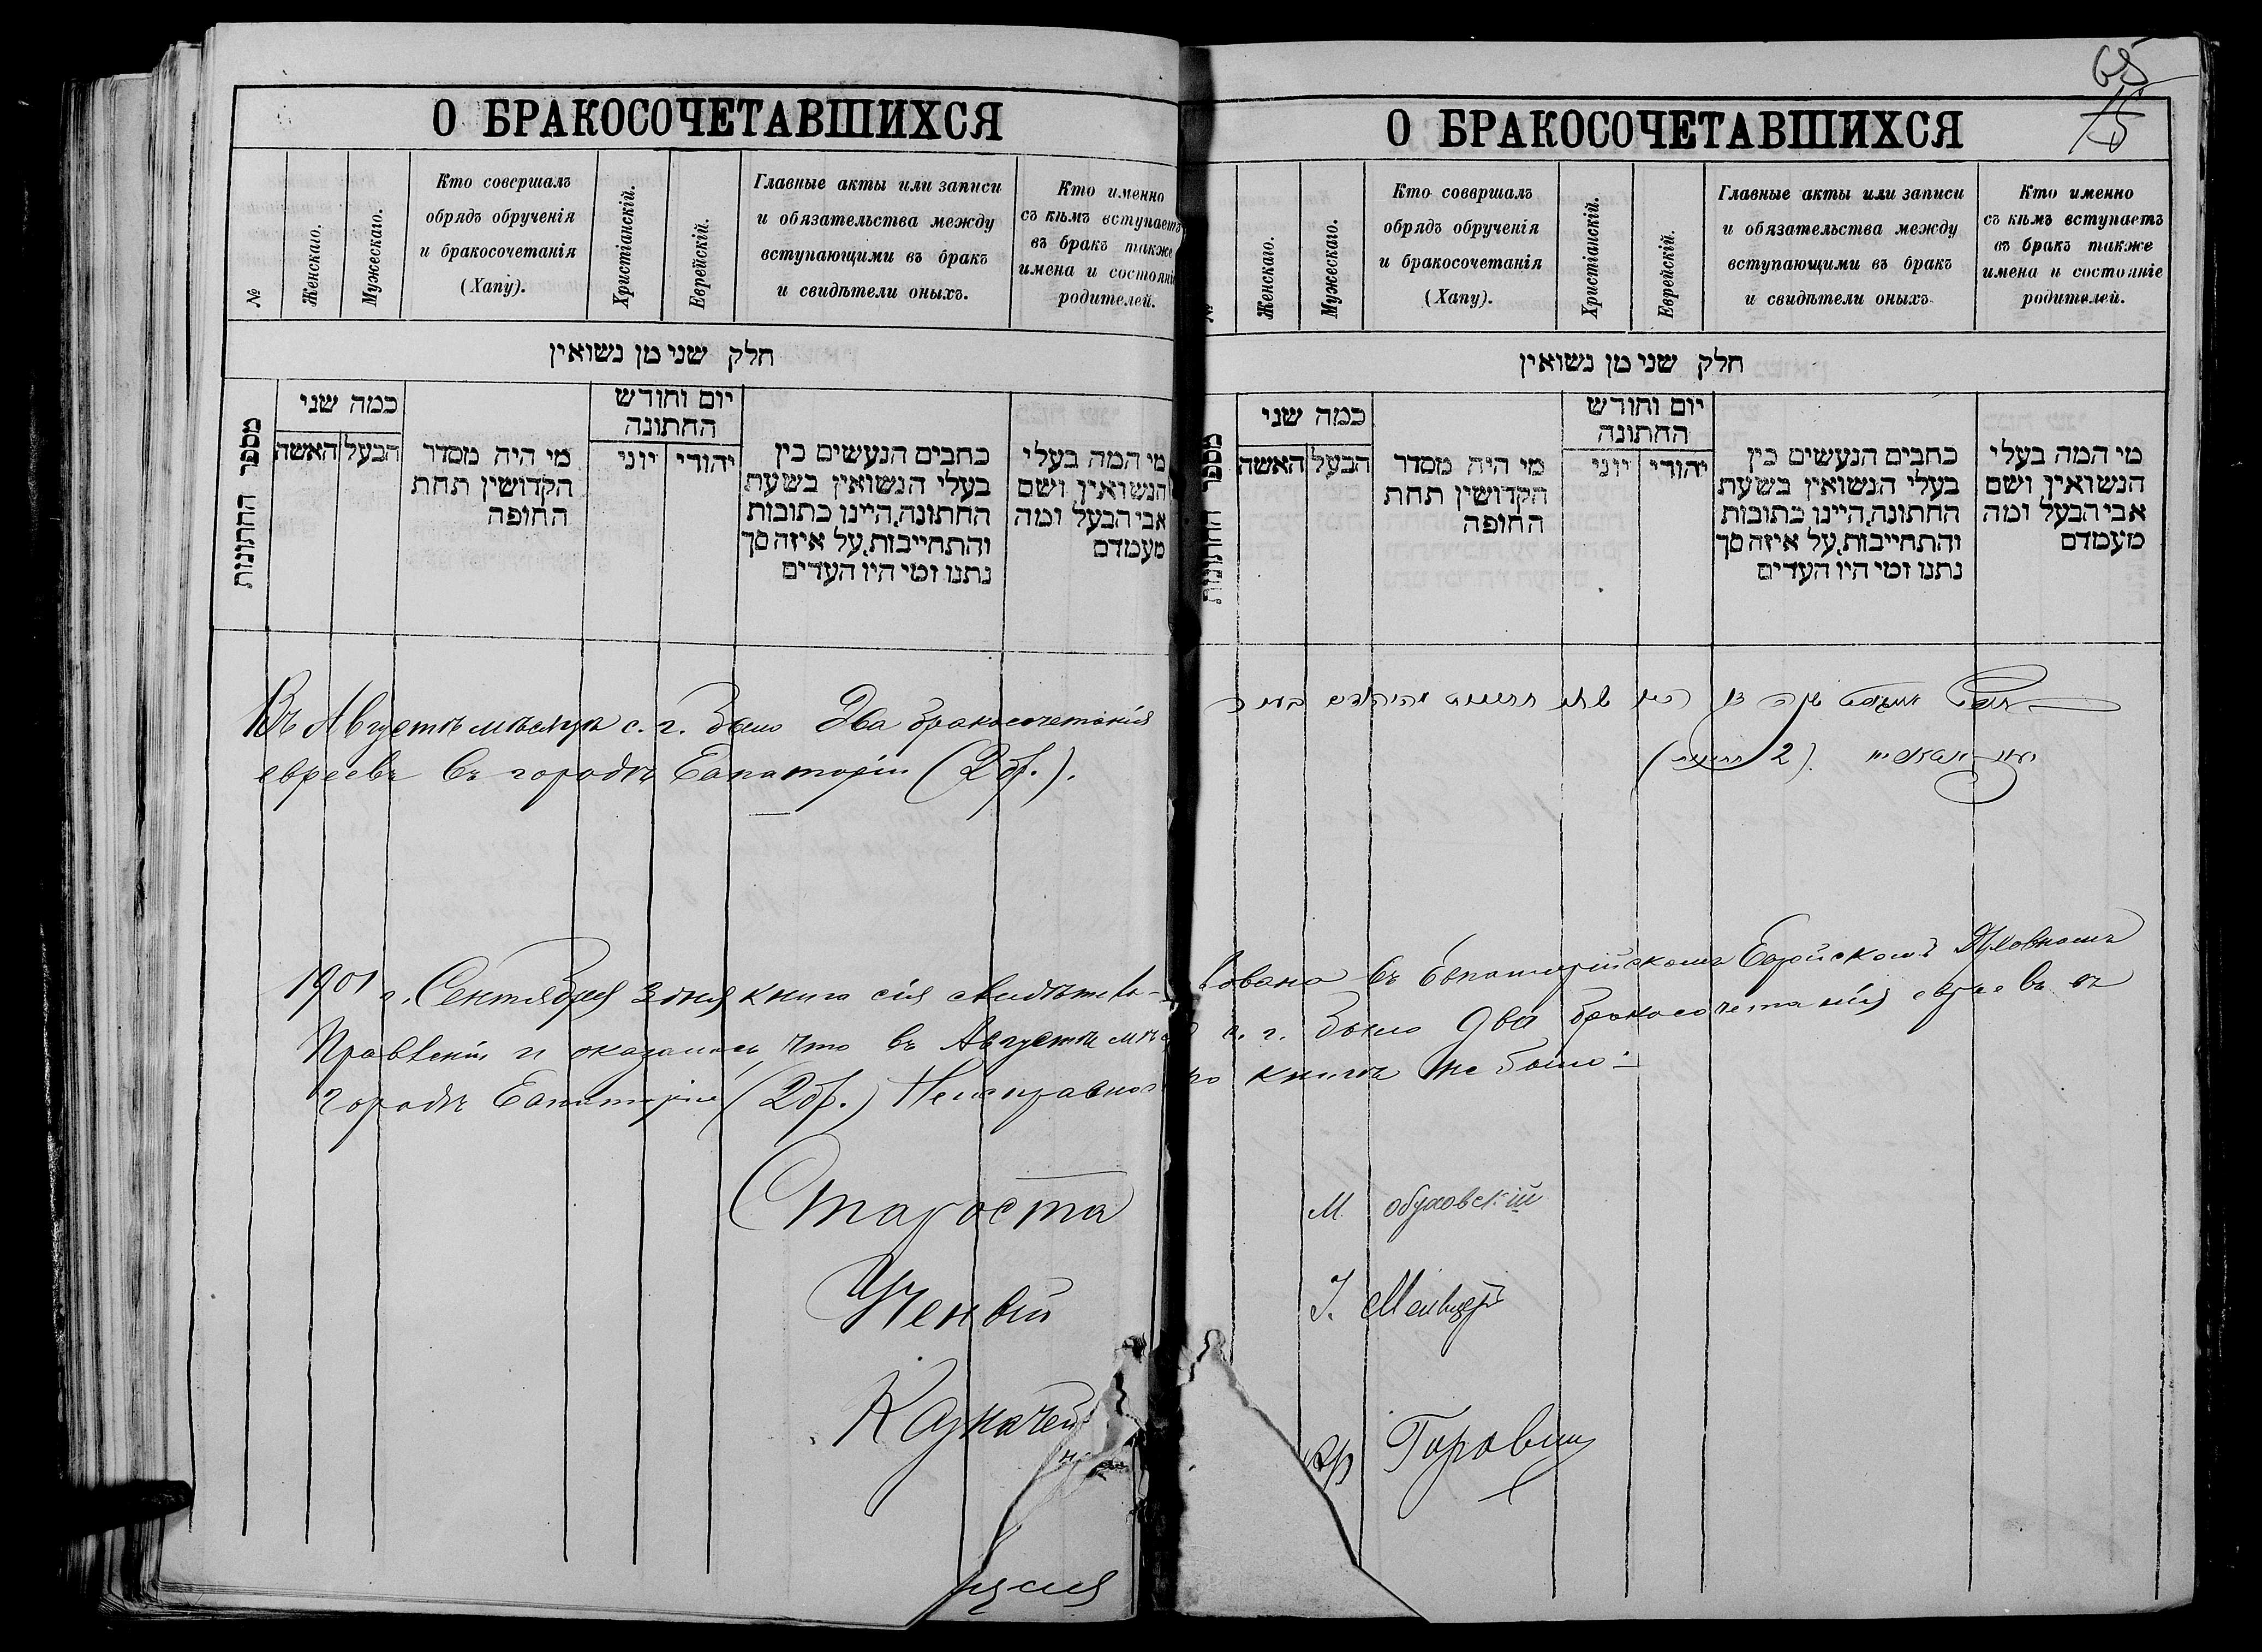 О БРАКОСОЧЕТАВШИХСЯ
№
Женскаго.
Мужескаго.
Кто совершалъ
обрядъ обрученія
и бракосочетанія
(Хапу).
Христіанскій.
Еврейскій.
Главные акты или записи
и обязательства между
вступающими въ бракъ
и свидѣтели оныхъ.
Кто именно
съ кѣмъ вступаетъ
въ бракъ также
имена и состояніе
родителей.
חלק שני מן נשואין
מספר החתונות
כמה שני
האשה
הבעל
מי היה מסדר
הקדושין תחת
החופה
יום וחודש
החתונה
יוני
יהודי
כתבים הנעשים בין
בעלי הנשואין בשעת
החתונה, היינו כתובות
והתחייבות, על איזה סך
נתנו ומי היו העדים
מי המה בעלי
הנשואין ושם
אבי הבעל ומה
מעמדם
Въ Августѣ мѣсяцѣ с. г. было два бракосочетанія
евреевъ въ городѣ Евпаторіи (2 бр.).
1901 г. Сентября 3 дня книга сія свидѣтель-
Правленіи и оказалось, что въ Августѣ мѣс
городѣ Евпаторіи (2 бр.) Неисправнос
Староста
Ученый
Казначей
65
15
О БРАКОСОЧЕТАВШИХСЯ
№
Женскаго.
Мужескаго.
Кто совершалъ
обрядъ обрученія
и бракосочетанія
(Хапу).
Христіанскій.
Еврейскій.
Главные акты или записи
и обязательства между
вступающими въ бракъ
и свидѣтели оныхъ
Кто именно
съ кѣмъ вступаетъ
въ бракъ также
имена и состояніе
родителей.
חלק שני מן נשואין
מספר החתונות
כמה שני
האשה
הבעל
מי היה מסדר
הקדושין תחת
החופה
יום וחודש
החתונה
יוני
יהודי
כתבים הנעשים בין
בעלי הנשואין בשעת
החתונה, היינו כתובות
והתחייבות, על איזה סך
נתנו ומי היו העדים
מי המה בעלי
הנשואין ושם
אבי הבעל ומה
מעמדם
(2
вована въ Евпаторійскомъ Еврейскомъ Духовномъ
с. г. было два бракосочетанія евреевъ въ
по книгѣ не было
М Обуховскій
І.
Горовиц